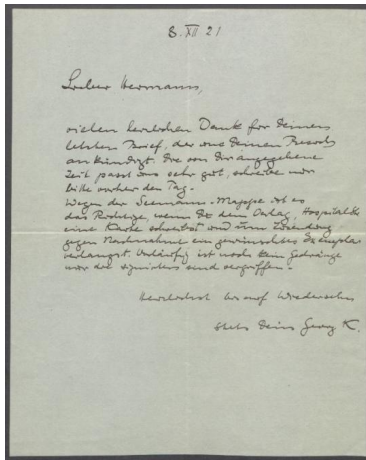 8. XII 21
Lieber Hermann,
vielen herzlichen Dank für Deinen
letzten Brief, der uns Deinen Besuch
ankündigt. Die von Dir angegebene
Zeit passt uns sehr gut, schreibe nur
bitte vorher den Tag.
Wegen der Seemann-Mappe ist es
das Richtige, wenn Du dem Verlag, Hospitalstr
eine Karte schreibst und um Zusendung
gegen Nachnahme ein gewünschtes Exemplar
verlangst. Vorläufig ist noch kein Gedränge
nur die signierten sind vergriffen.
Herzlichst bis auf Wiedersehn
stets Dein Georg K.